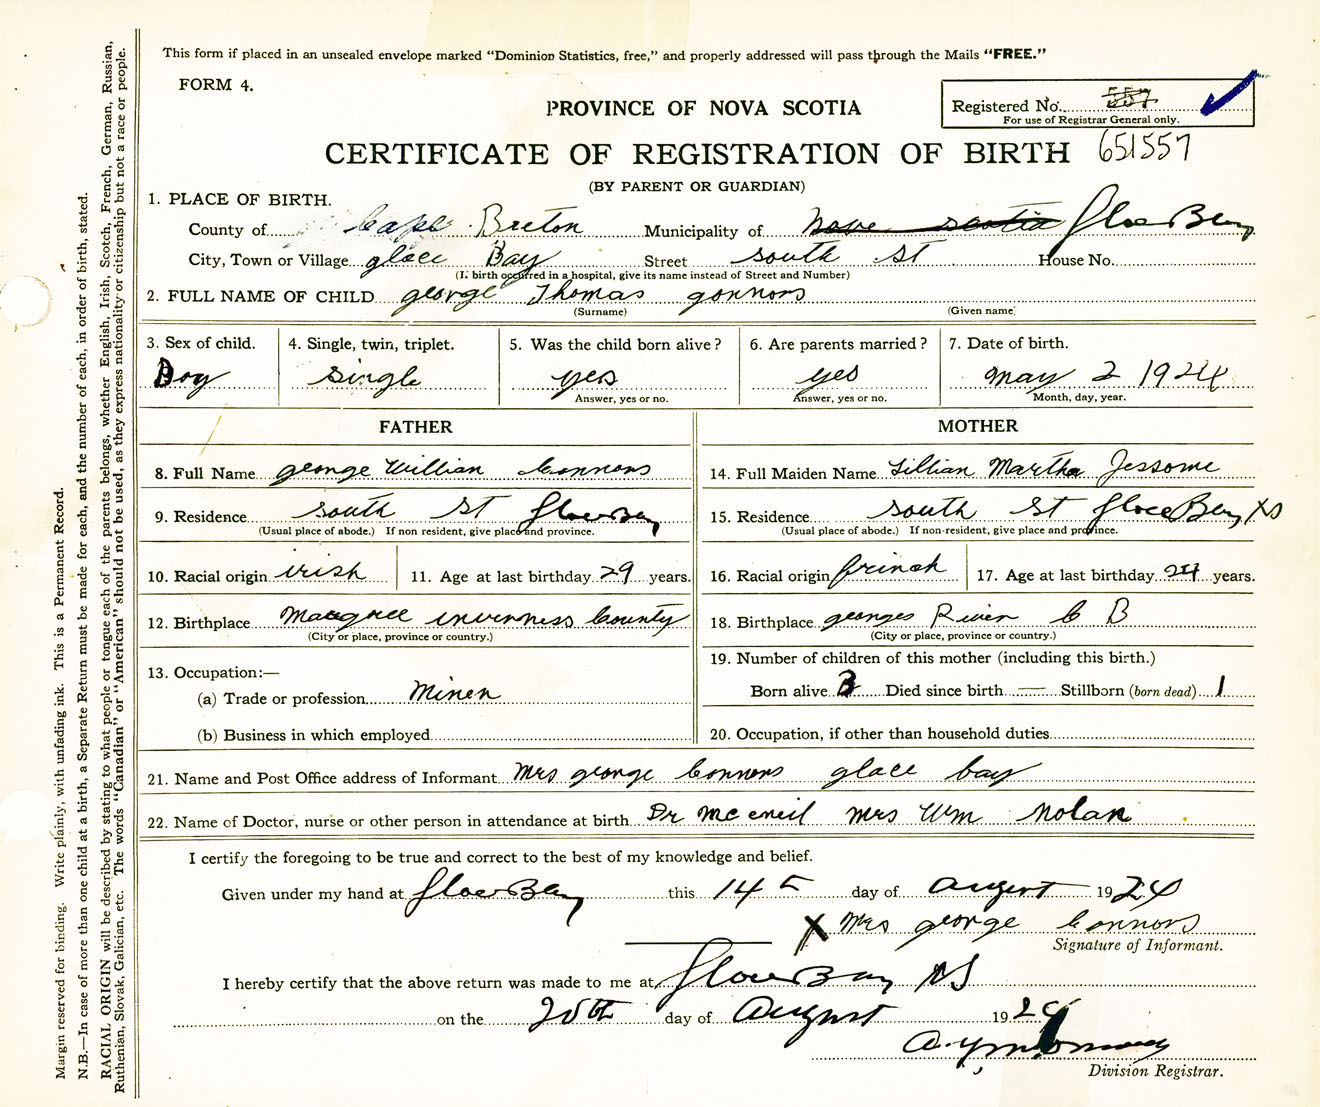 This form if placed in an unsealed envelope marked "Dominion Statistics, free," and properly addressed will pass through the Mails "FREE."
FORM 4.
PROVINCE OF NOVA SCOTIA
Registered No. 557
For use of Registrar General only.
CERTIFICATE OF REGISTRATION OF BIRTH 651557
(BY PARENT OR GUARDIAN)
1. PLACE OF BIRTH.
County of Cape Breton Municipality of Nova Scotia Glace Bay
City, Town or Village glace Bay Street south St House No.
(If birth occurred in a hospital, give its name instead of Street and Number)
2. FULL NAME OF CHILD george Thomas gonnors
(Surname) (Given name)
3. Sex of child. 4. Single, twin, triplet. 5. Was the child born alive? 6. Are parents married? 7. Date of birth.
Boy single yes yes may 2 1924
Answer, yes or no. Answer, yes or no. Month, day, year.
FATHER MOTHER
8. Full Name george William Connors 14. Full Maiden Name Lillian Martha Jessome
9. Residence south St Glace Bay 15. Residence south St Glace Bay NS
(Usual place of abode.) If non resident, give place and province. (Usual place of abode.) If non-resident, give place and province.
10. Racial origin irish 11. Age at last birthday 29 years. 16. Racial origin frinch 17. Age at last birthday 24 years.
12. Birthplace Margree inverness County 18. Birthplace georges River C B
(City or place, province or country.) (City or place, province or country.)
13. Occupation:— 19. Number of children of this mother (including this birth.)
(a) Trade or profession Miner Born alive 3 Died since birth — Stillborn (born dead) 1
(b) Business in which employed 20. Occupation, if other than household duties
21. Name and Post Office address of Informant Mrs george Connors glace bay
22. Name of Doctor, nurse or other person in attendance at birth Dr Mc eneil Mrs Wm Nolan
I certify the foregoing to be true and correct to the best of my knowledge and belief.
Given under my hand at Glace Bay this 14th day of August 1924
X Mrs george Connors
Signature of Informant.
I hereby certify that the above return was made to me at Glace Bay NS
on the 20th day of August 1924
Division Registrar.
Margin reserved for binding. Write plainly, with unfading ink. This is a Permanent Record.
N.B.—In case of more than one child at a birth, a Separate Return must be made for each, and the number of each, in order of birth, stated.
RACIAL ORIGIN will be described by stating to what people or tongue each of the parents belongs, whether English, Irish, Scotch, French, German, Russian,
Ruthenian, Slovak, Galician, etc. The words "Canadian" or "American" should not be used, as they express nationality or citizenship but not a race or people.